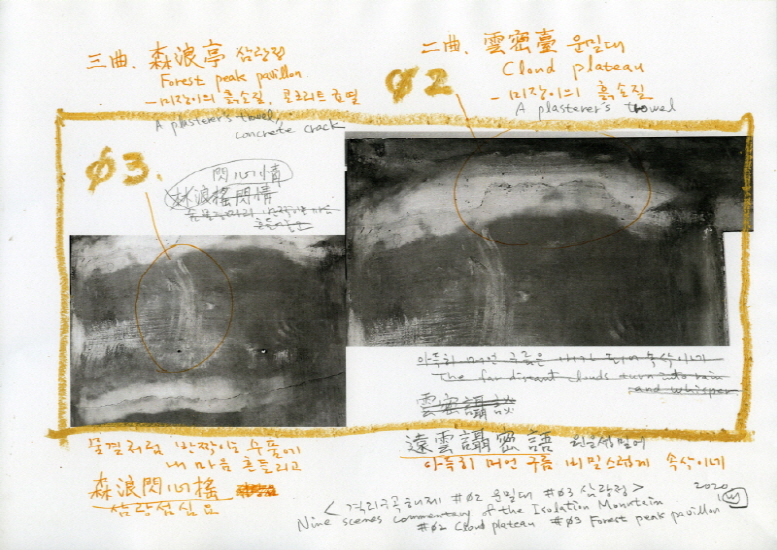 三曲. 森浪亭 삼랑정
Forest peak pavilion
- 미장이의 흙손질, 콘크리트 균열
A plasterer's trowel,
concrete crack
二曲. 雲密臺 운밀대
Cloud plateau
- 미장이의 흙손질
A plasterer's trowel
Ø2
Ø3.
閃心情
林浪搖閃情
아득히 머언 구름은 비가 되어 속삭이네
The far distant clouds turn into rain
and whisper
雲密讘
遠雲讘密語 원운섭밀어
아득히 머언 구름 비밀스럽게 속삭이네
물결처럼 반짝이는 수풀에
내 마음 흔들리고
森浪閃心搖
삼랑섬심요
< 격리구곡 해제 #02 운밀대 #03 삼랑정 >
2020
Nine scenes commentary of the Isolation Mountain
#02 Cloud plateau #03 Forest peak pavilion